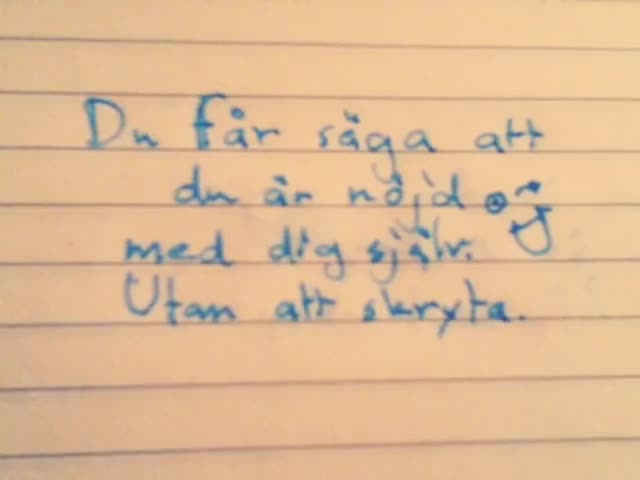 Du får säga att
du är nöjd
med dig själv.
Utan att skryta.